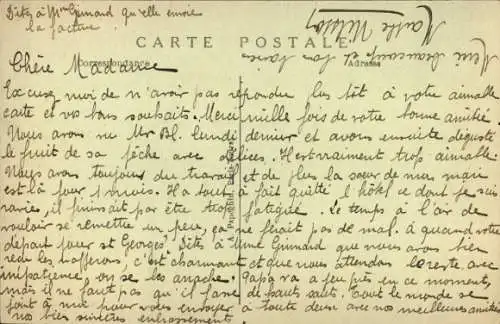 Dites à Mme Guinard qu'elle envoie
la facture.
CARTE POSTALE
Correspondance
Adresse
Merci beaucoup et bons baisers
Chère Madame
Excusez moi de n'avoir pas répondu plus tôt à votre aimable
carte et vos bons souhaits. Merci mille fois de votre bonne amitié.
Nous avons vu Mr Bl. lundi dernier et avons ensuite dégusté
le fruit de sa pêche avec délices. Il est vraiment trop aimable.
Nous avons toujours du travail et de plus la sœur de mon mari
est là pour 1 mois. Il a tout à fait quitté l'hôtel ce dont je suis
ravie, il finissait par être trop fatigué. Le temps à l'air de
vouloir se remettre un peu, ça ne ferait pas de mal. A quand votre
départ pour St Georges? Dites à Mme Guinard que nous avons bien
reçu les coffrons, c'est charmant et que nous attendons le reste avec
impatience, on se les arrache. Papa va à peu près en ce moment,
mais il ne faut pas qu'il fasse de hauts sauts. Tout le monde se
joint à moi pour vous envoyer à toute deux avec nos meilleures amitiés
nos bien sincères embrassements.